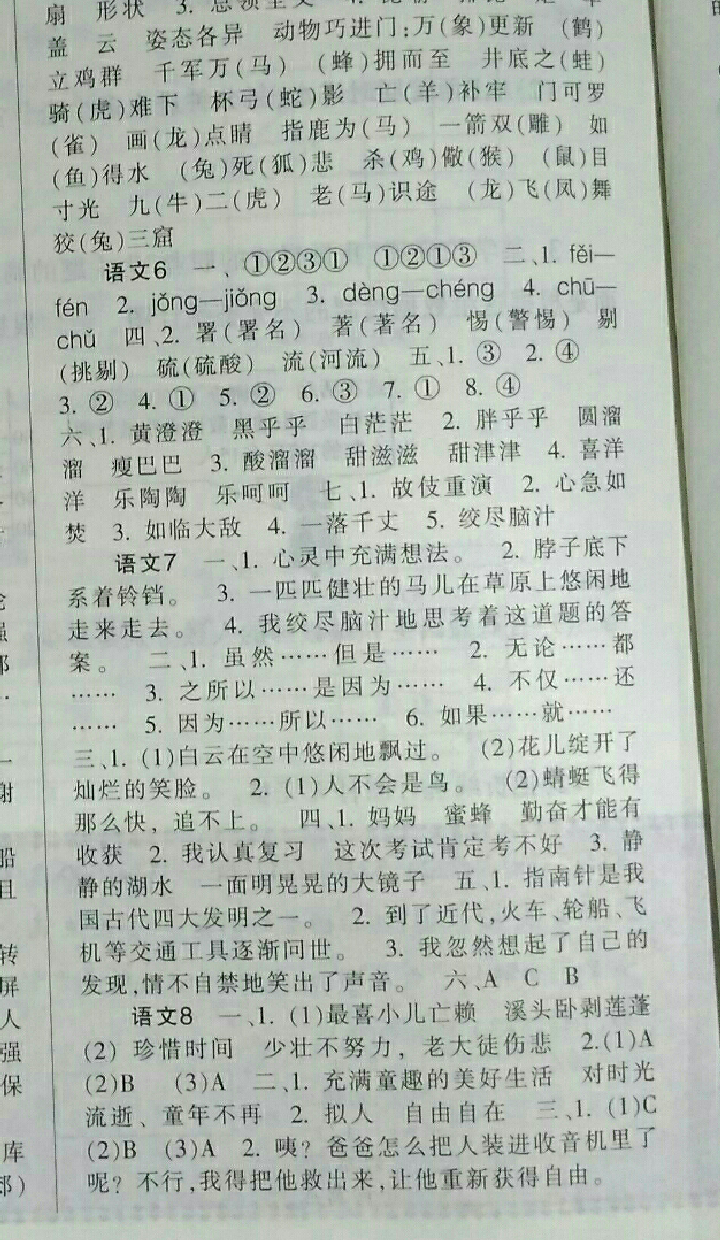 扇 形状 3.
盖 云 姿态各异 动物巧进门:万(象)更新 (鹤)
立鸡群 千军万(马) (蜂)拥而至 井底之(蛙)
骑(虎)难下 杯弓(蛇)影 亡(羊)补牢 门可罗
(雀) 画(龙)点睛 指鹿为(马) 一箭双(雕) 如
(鱼)得水 (兔)死(狐)悲 杀(鸡)儆(猴) (鼠)目
寸光 九(牛)二(虎) 老(马)识途 (龙)飞(凤)舞
狡(兔)三窟
语文6 一、①②③① ①②①③ 二、1. fěi—
fén 2. jǒng—jiǒng 3. dèng—chéng 4. chū—
chǔ 四、2. 署(署名) 著(著名) 惕(警惕) 剔
(挑剔) 硫(硫酸) 流(河流) 五、1. ③ 2. ④
3. ② 4. ① 5. ② 6. ③ 7. ① 8. ④
六、1. 黄澄澄 黑乎乎 白茫茫 2. 胖乎乎 圆溜
溜 瘦巴巴 3. 酸溜溜 甜滋滋 甜津津 4. 喜洋
洋 乐陶陶 乐呵呵 七、1. 故伎重演 2. 心急如
焚 3. 如临大敌 4. 一落千丈 5. 绞尽脑汁
语文7 一、1. 心灵中充满想法。 2. 脖子底下
系着铃铛。 3. 一匹匹健壮的马儿在草原上悠闲地
走来走去。 4. 我绞尽脑汁地思考着这道题的答
案。 二、1. 虽然……但是…… 2. 无论……都
…… 3. 之所以……是因为…… 4. 不仅……还
…… 5. 因为……所以…… 6. 如果……就……
三、1. (1)白云在空中悠闲地飘过。 (2)花儿绽开了
灿烂的笑脸。 2. (1)人不会是鸟。 (2)蜻蜓飞得
那么快,追不上。 四、1. 妈妈 蜜蜂 勤奋才能有
收获 2. 我认真复习 这次考试肯定考不好 3. 静
静的湖水 一面明晃晃的大镜子 五、1. 指南针是我
国古代四大发明之一。 2. 到了近代,火车、轮船、飞
机等交通工具逐渐问世。 3. 我忽然想起了自己的
发现,情不自禁地笑出了声音。 六、A C B
语文8 一、1. (1)最喜小儿亡赖 溪头卧剥莲蓬
(2) 珍惜时间 少壮不努力,老大徒伤悲 2.(1)A
(2)B (3)A 二、1. 充满童趣的美好生活 对时光
流逝、童年不再 2. 拟人 自由自在 三、1. (1)C
(2)B (3)A 2. 咦?爸爸怎么把人装进收音机里了
呢?不行,我得把他救出来,让他重新获得自由。